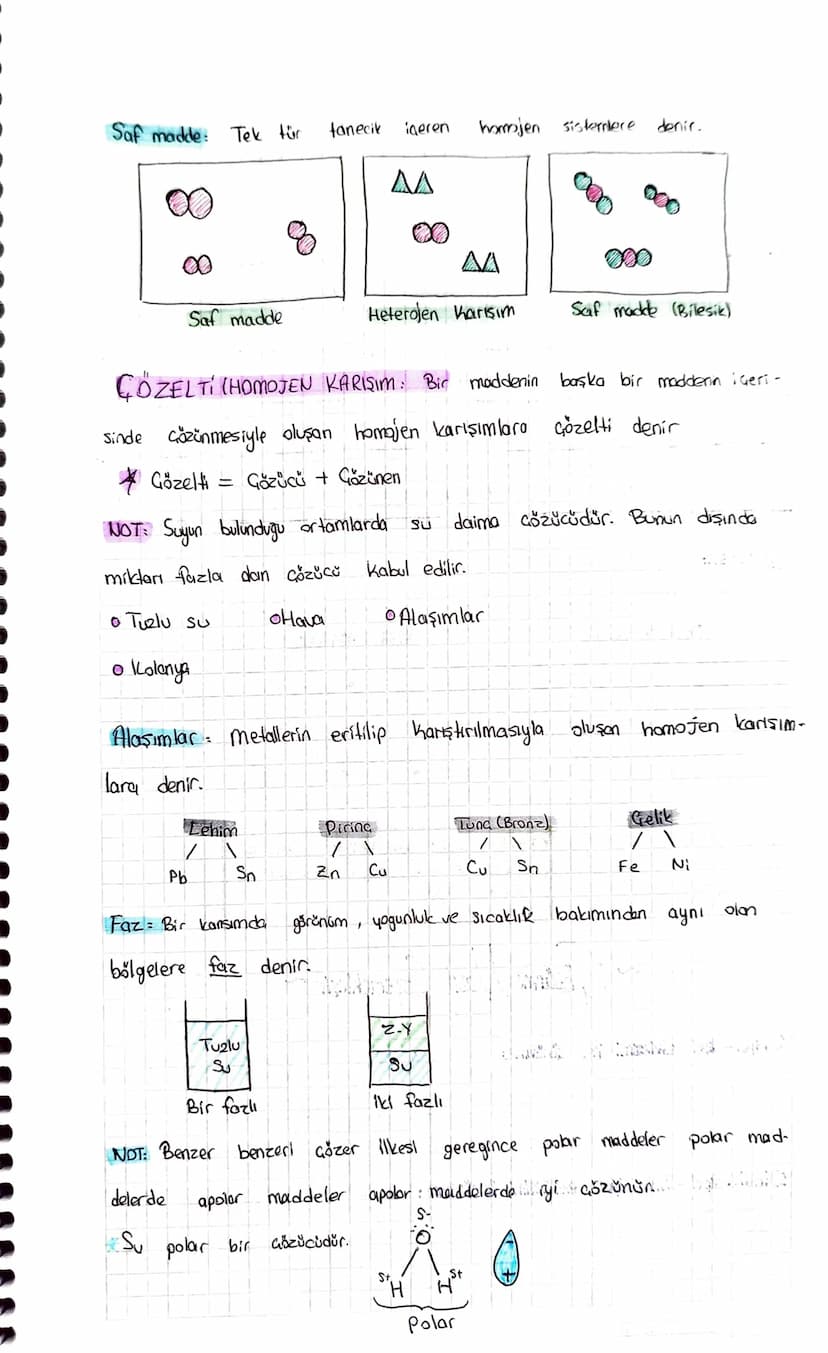 Saf madde: Tek tür tanecik içeren homojen sistemlere denir.
Saf madde
Heterojen Karışım
Saf madde (Bileşik)
ÇÖZELTİ (HOMOJEN KARIŞIM: Bir maddenin başka bir maddenin içeri-
sinde çözünmesiyle oluşan homojen karışımlara çözelti denir
* Çözelti = Çözücü + Çözünen
NOT: Suyun bulunduğu ortamlarda su daima çözücüdür. Bunun dışında
miktarı fazla olan çözücü kabul edilir.
Tuzlu su Hava Alaşımlar
Kolonya
Alaşımlar: metallerin eritilip karıştırılmasıyla oluşan homojen karışım-
lara denir.
Lehim Pirinç Tunç (Bronz) Çelik
Pb Sn Zn Cu Cu Sn Fe Ni
Faz = Bir karışımda görünüm, yoğunluk ve sıcaklık bakımından aynı olan
bölgelere faz denir.
Tuzlu
Su
Z-Y
Su
Bir fazlı
İki fazlı
NOT: Benzer benzeri çözer ilkesi gereğince polar maddeler polar mad-
delerde apolar maddeler apolar maddelerde iyi çözünür.
Su polar bir çözücüdür.
S-
O
S+ H H S+
- +
Polar